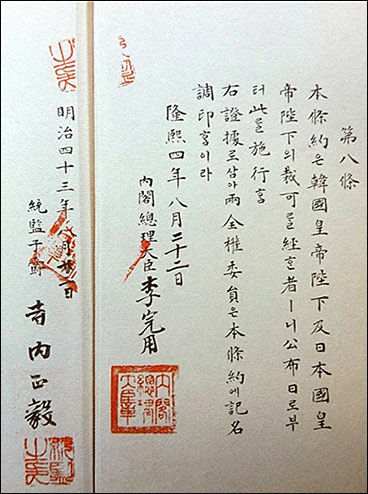 第八條
本條約은韓國皇帝陛下及日本國皇
帝陛下의裁可를經ᄒᆞᆫ者ㅣ니公布日로부
터此를施行홈
右證據로삼아兩全權委員은本條約에記名
調印홈이라
隆熙四年八月二十二日
內閣總理大臣 李完用
內閣總理大臣章
明治四十三年八月廿二日
統監子爵 寺內正毅